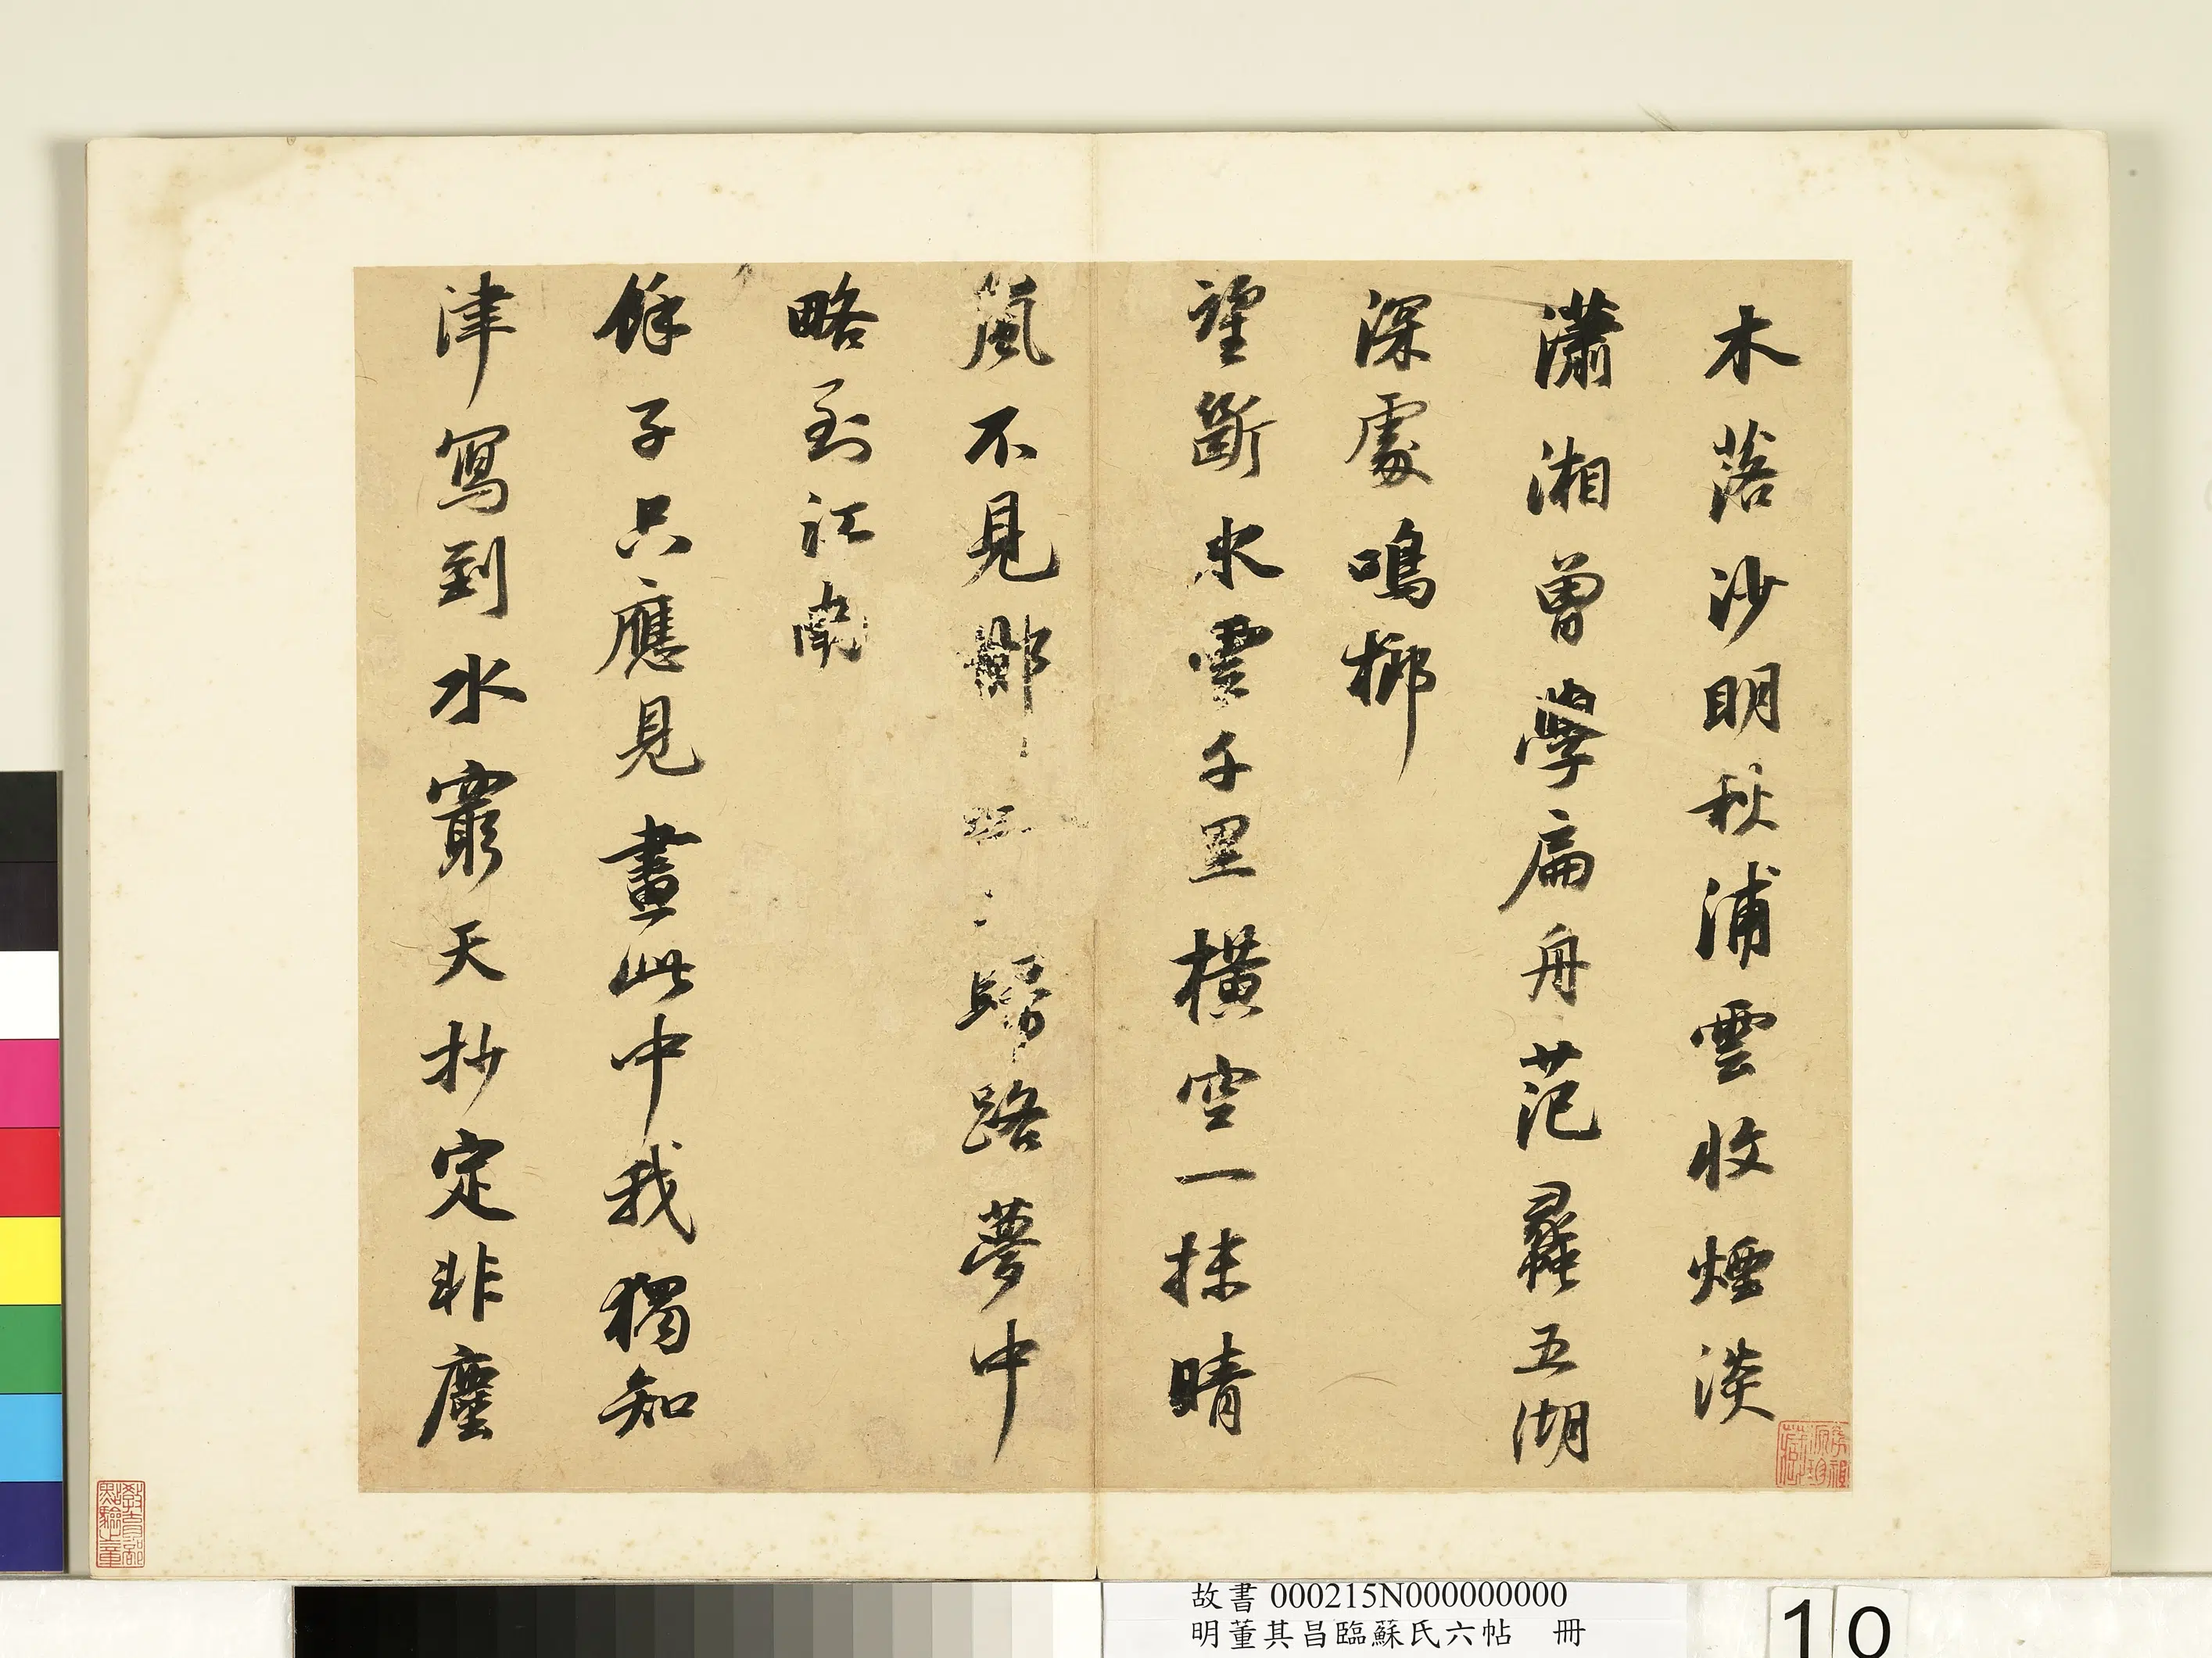 木落沙明秋浦雲收煙淡
瀟湘曾學扁舟范蠡五湖
深處鳴榔
望斷水雲千里橫空一抹晴
嵐不見歸路夢中
略到江南
餘子只應見畫此中我獨知
津寫到水窮天抄定非塵
教育部點驗之章
故書000215N000000000
明董其昌臨蘇氏六帖 冊
10